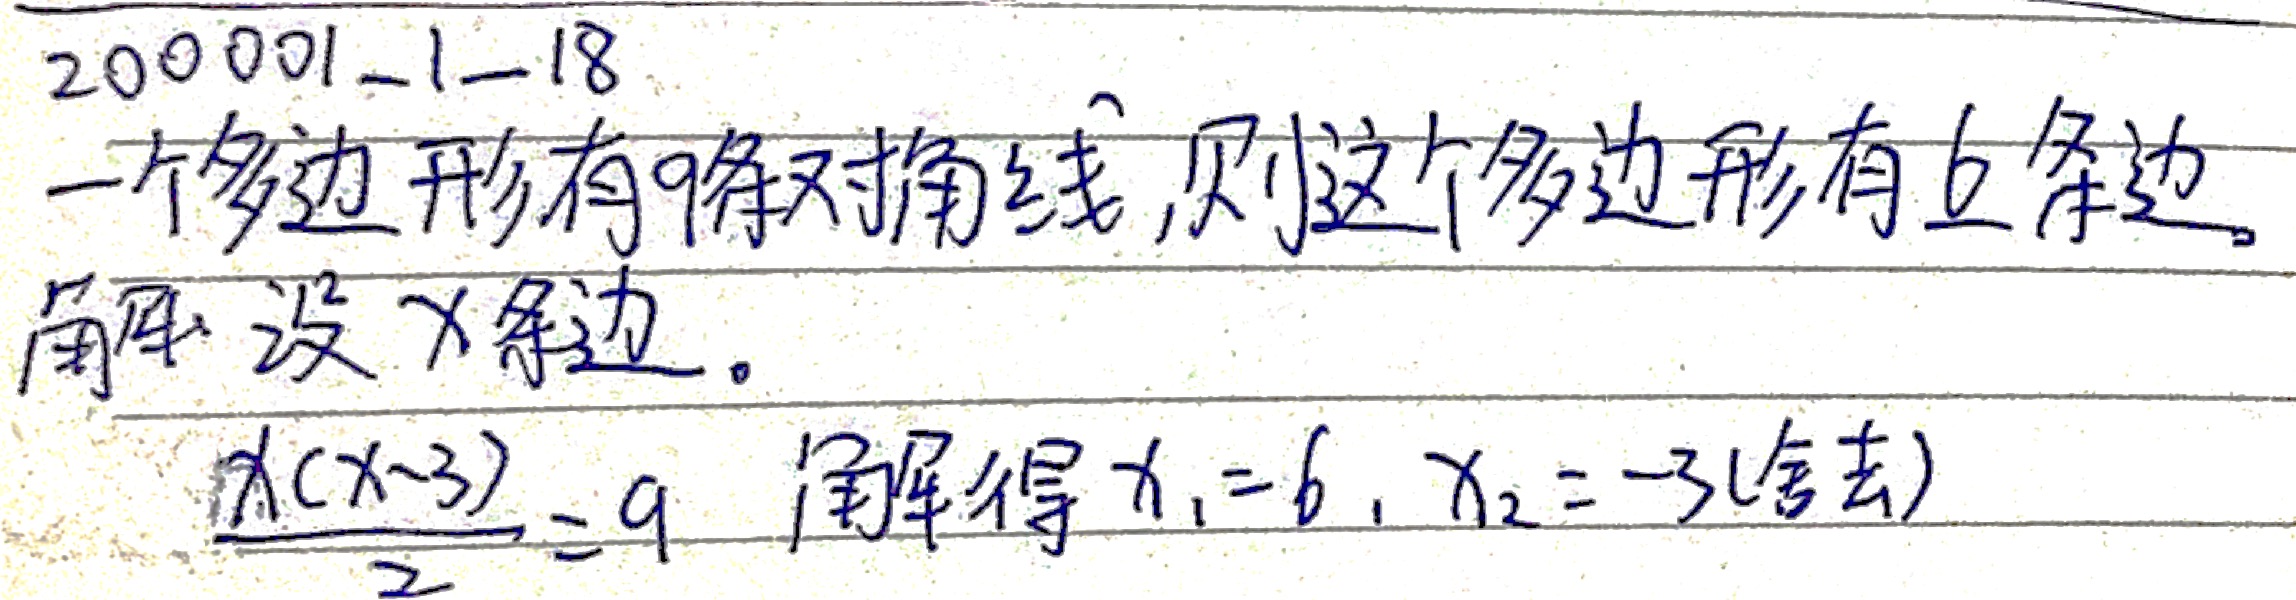 200001-1-18
一个多边形有9条对角线,则这个多边形有6条边。
解 设x条边。
x(x-3)/2=9 解得x₁=6,x₂=-3(舍去)